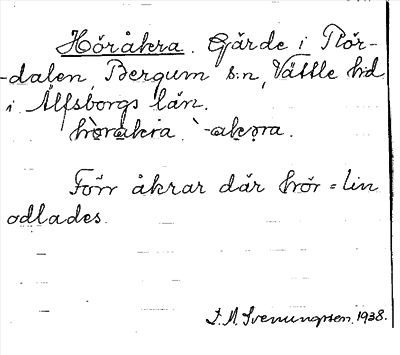 Höråkra. Gärde i Rör-
dalen, Bergum s:n, Vättle hd
i Älfsborgs län.
hòrakra. `-akra.
Förr åkrar där hör = lin
odlades.
F. M. Svenungsson. 1938.